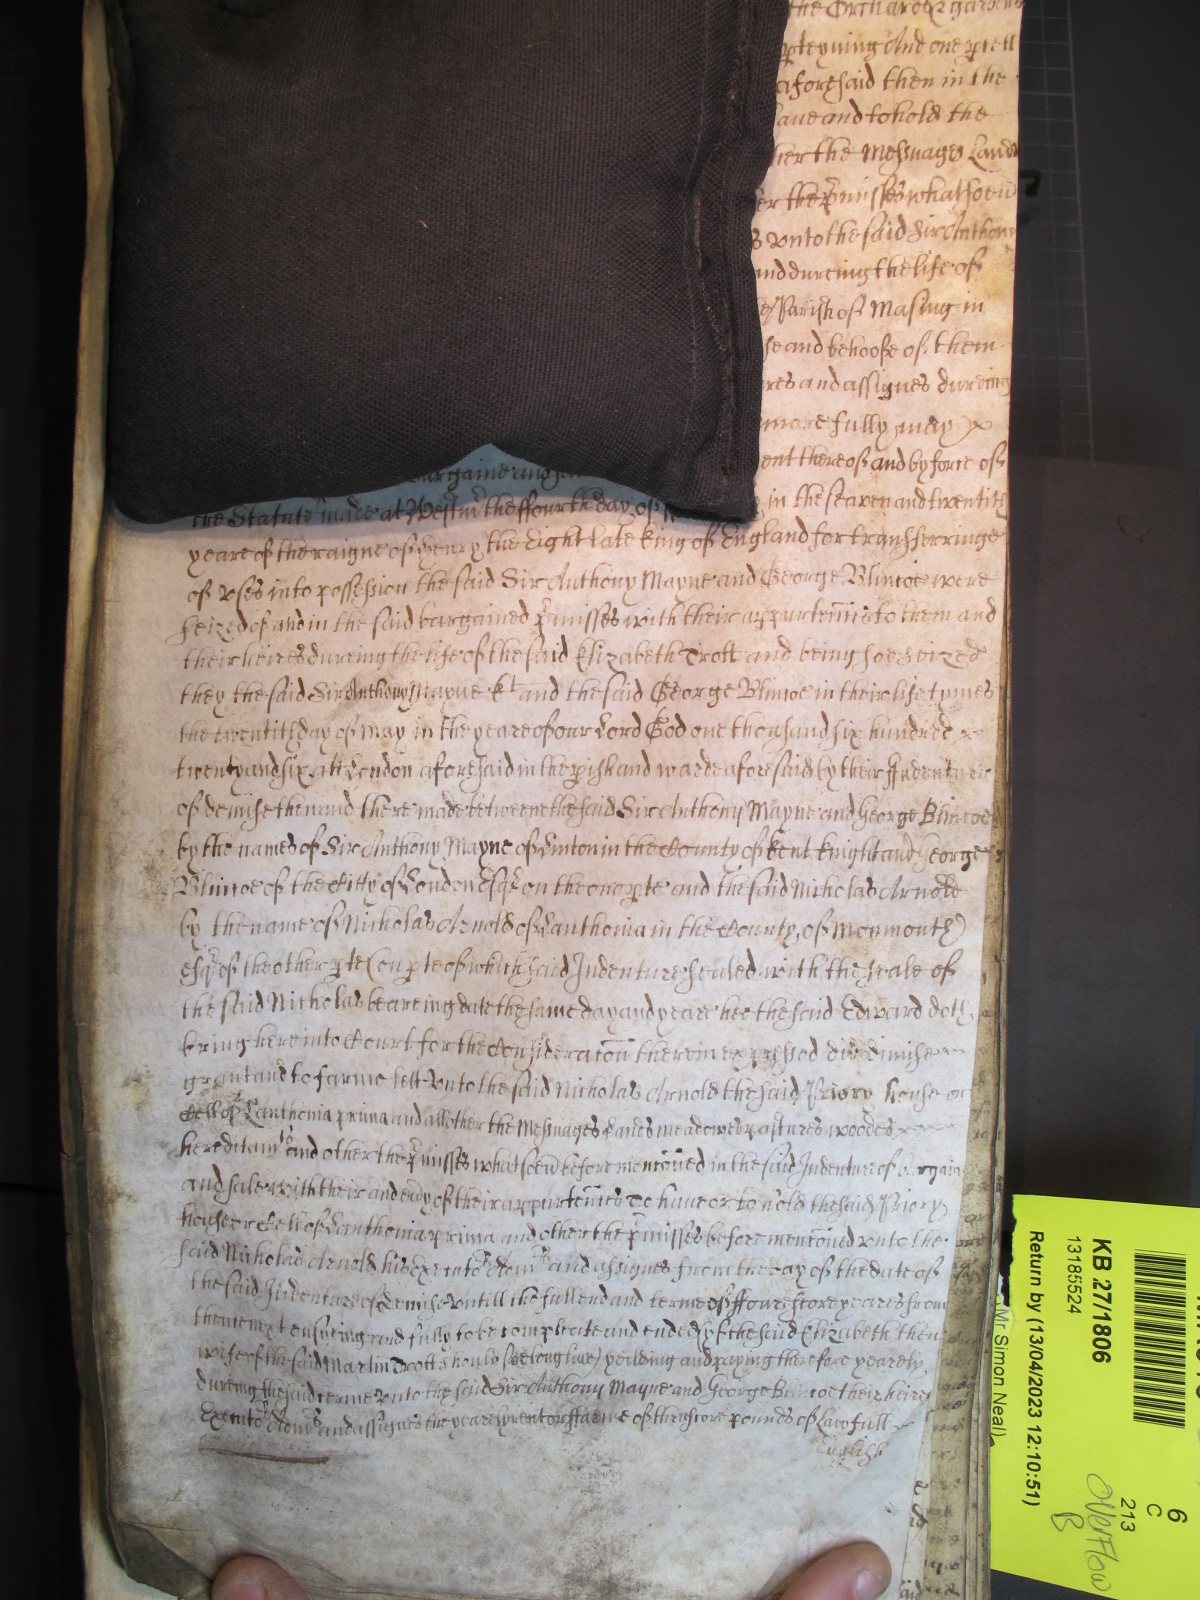 the Orchard & gardens
p̱teyning And one p̱cell
aforesaid then in the
aue and to hold the
her the Messuages Lands
er the p̱misses whatsoeu
s vnto the said Sir Anthony
and dureing the life of
Parish of Masing in
se and behoofe of them
res and assignes dureing
more fully may
ent thereof and by force of
bargaine and
the Statute made at Westm̃ the ffourth day of in the seaven and twentith
yeare of the raigne of Henry the Eight late king of England for transferringe
of vses into possession the said Sir Anthony Mayne and George Blincoe were
seized of and in the said bargained p̱misses with their appurteñnc̃ to them and
their heires dureing the life of the said Elizabeth Trott and being soe seized
they the said Sir Anthony Mayne Kt and the said George Blincoe in their life tymes
the twentith day of May in the yeare of our Lord God one thousand six hundred
twenty and six att London aforesaid in the p̱ish and warde aforesaid by their Indenture
of demise then and there made betweene the said Sir Anthony Mayne and George Blincoe
by the names of Sir Anthony Mayne of Linton in the County of Kent knight and George
Blincoe of the Citty of London Esqr on the one p̱te and the said Nicholas Arnold
by the name of Nicholas Arnold of Lanthonia in the County of Monmouth
Esqr of the other p̱te (one p̱te of which said Indenture sealed with the seale of
the said Nicholas beareing date the same day and yeare hee the said Edward doth
bring here into Court for the Consideratõn therein expressed did dimise
grant and to farme lett vnto the said Nicholas Arnold the said Priory house or
Cell of Lanthonia prima and all other the Messuages Lands meadowes pastures woodes
hereditamts and other the p̱misses whatsoeu̓ before menc̃oned in the said Indenture of bargaine
and sale with their and eu̓y of their appurteñnces To haue or to hold the said Priory
house or Cell of Lanthonia prima and other the p̱misses before menc̃oned vnto the
said Nicholas Arnold his Executors Admrs and assignes from the day of the date of
the said Indenture of Demise vntill the full end and terme of ffourescore yeares from
thence next ensueing and fully to be compleate and ended yf the said Elizabeth then
wife of the said Martin Trott should soe long live) yeilding and paying therefore yearely
dureing the said terme vnto the said Sir Anthony Mayne and George Blincoe their heires
Executors Admrs and assignes the yearely rent or ffarme of threscore pounds of Lawfull
English
KB 27/1806
13185524
Return by (13/04/2023 12:10:51)
(Mr Simon Neal)
6
C
213
Overflow
B